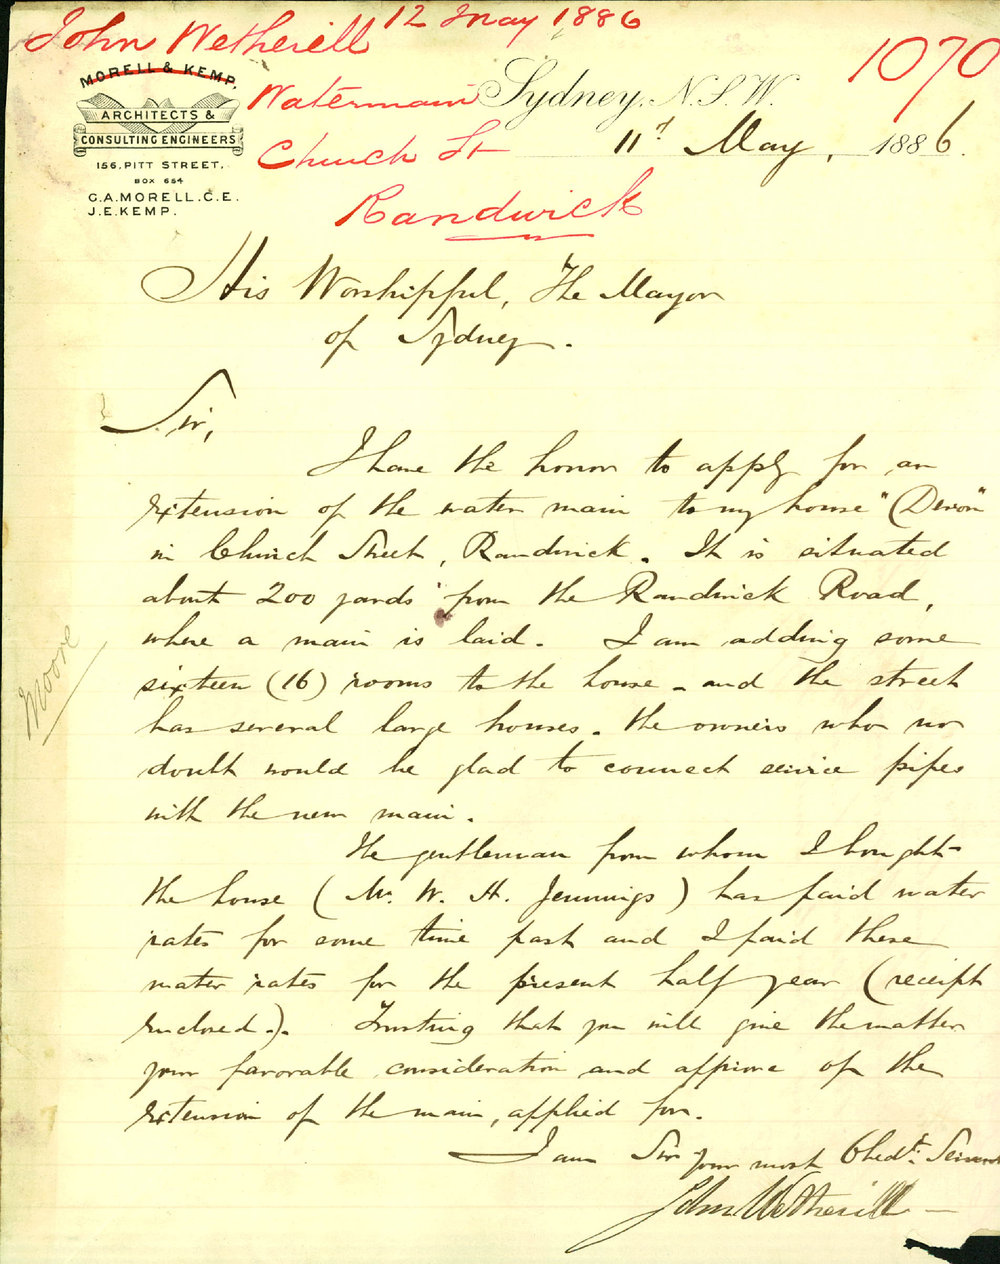 John Wetherill 12 May 1886
1070
MORELL & KEMP,
ARCHITECTS &
CONSULTING ENGINEERS
156, PITT STREET.
BOX 654
G.A. MORELL. C.E.
J.E. KEMP.
Watermain
Church St
Randwick
Sydney, N.S.W.
11th May, 1886.
His Worshipful, The Mayor
of Sydney.
Sir,
I have the honor to apply for an
extension of the water main to my house "(Devon"
in Church Street, Randwick. It is situated
about 200 yards from the Randwick Road,
where a main is laid. I am adding some
sixteen (16) rooms to the house - and the street
has several large houses. the owners who no
doubt would be glad to connect service pipes
with the new main.
Moore
The gentleman from whom I bought
the house (Mr. W. H. Jennings) has paid water
rates for some time past and I paid these
water rates for the present half year (receipt
enclosed.). Trusting that you will give the matter
your favorable consideration and approve of the
extension of the main, applied for.
I am Sir your most Obedt. Servant
John Wetherill